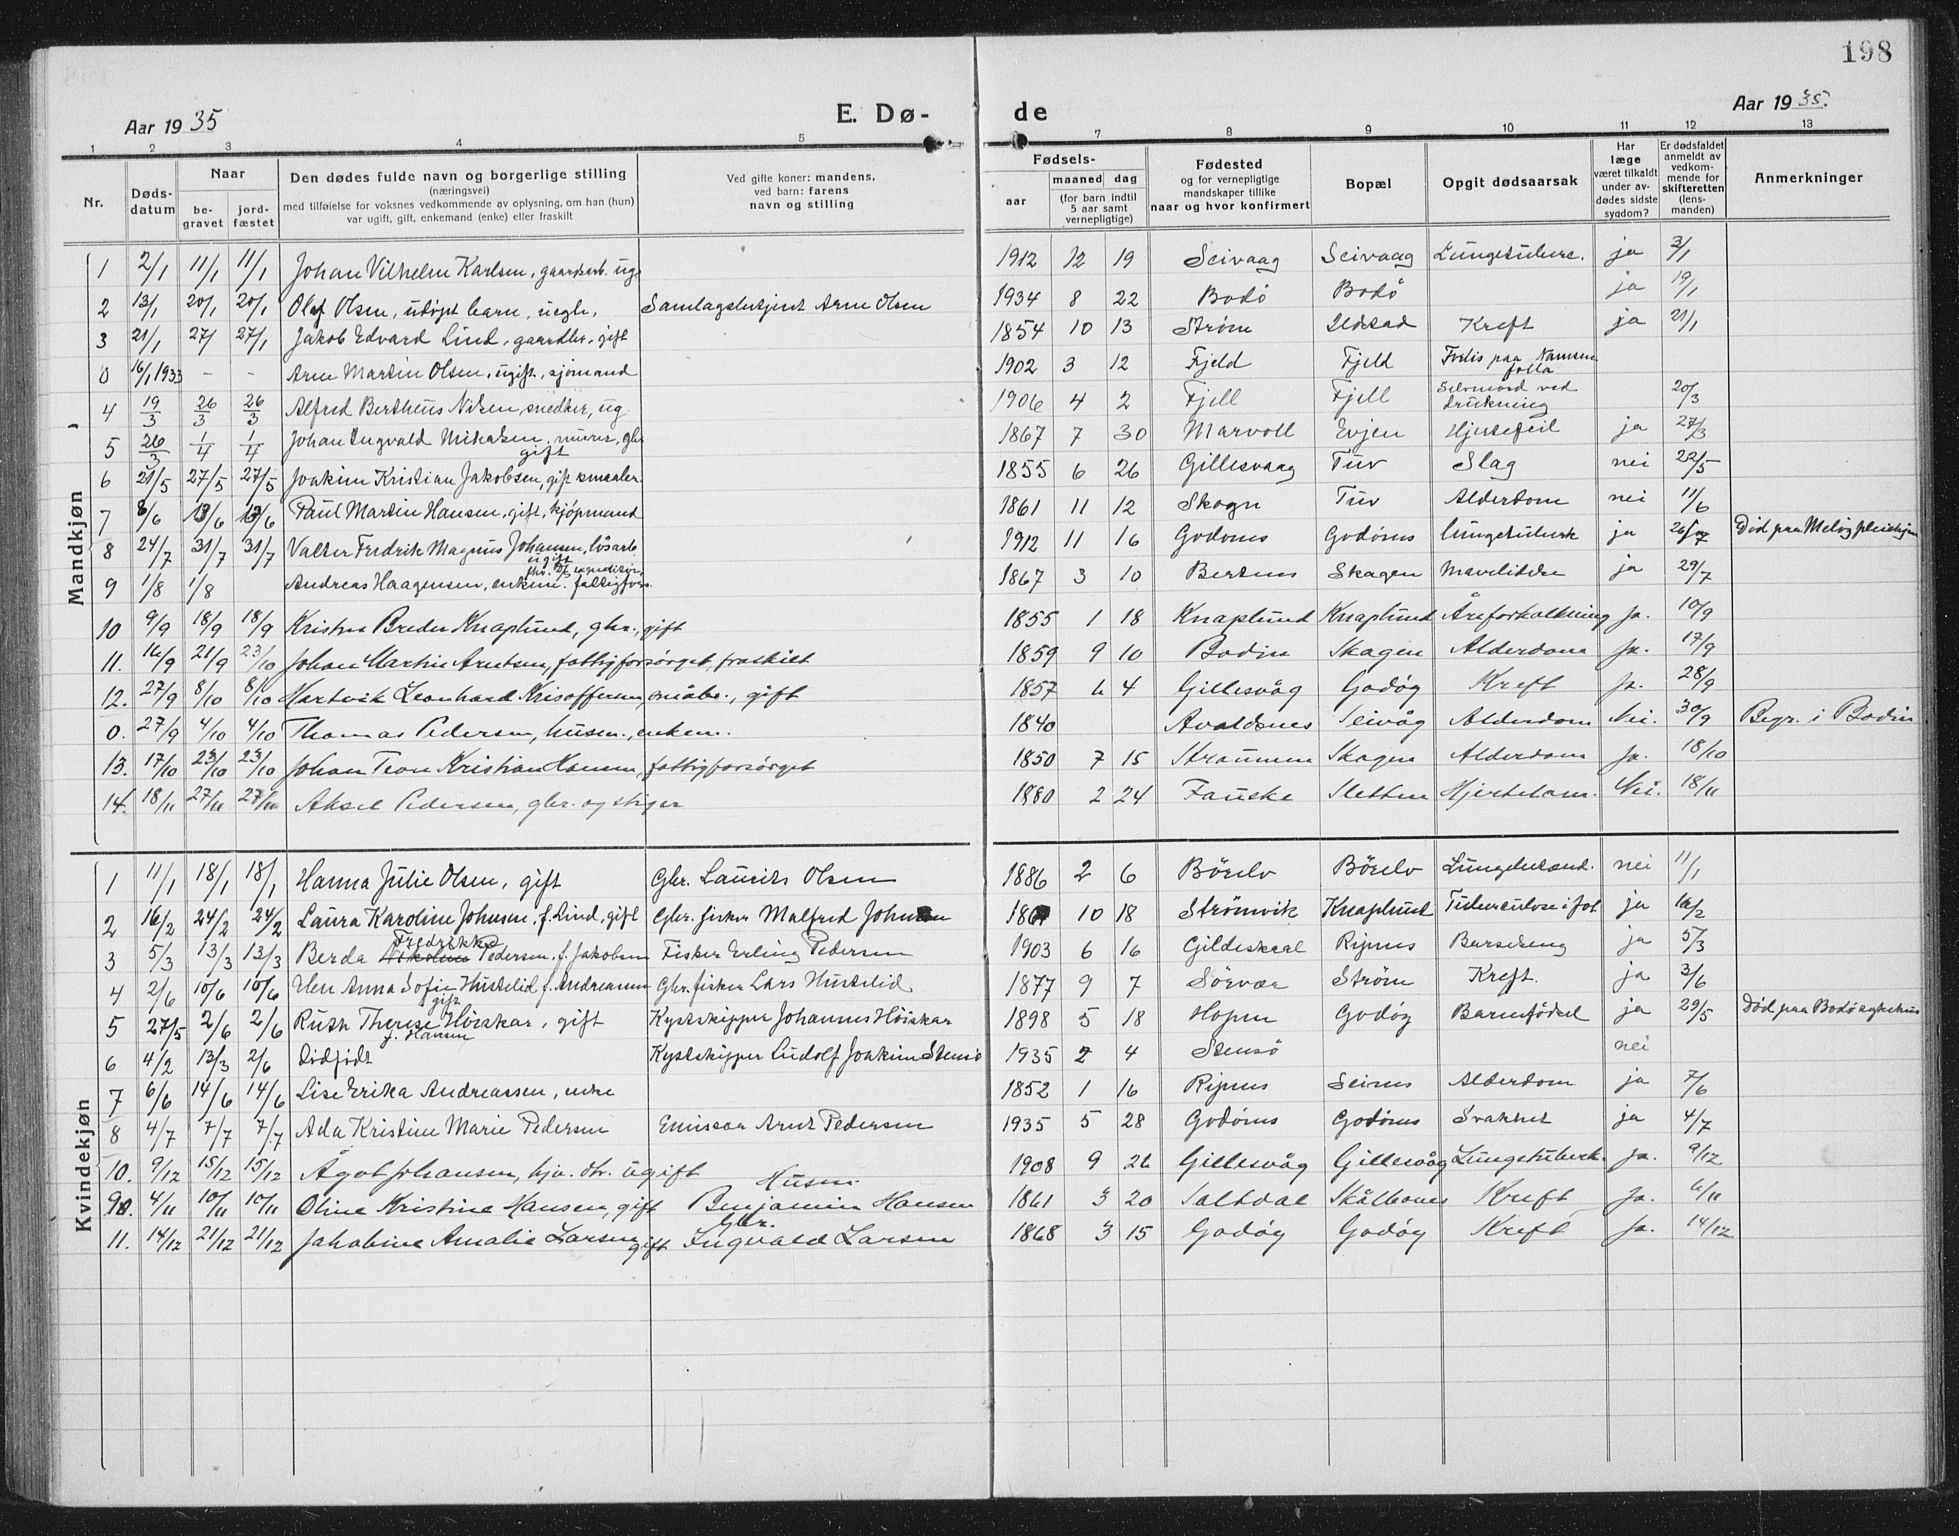 198
Aar 1935 E. Dø- de Aar 1935.
1 2 3 4 5 7 8 9 10 11 12 13
Nr. Døds-datum Naar be-gravet jord-fæstet Den dødes fulde navn og borgerlige stilling (næringsvei) med tilføielse for voksnes vedkommende av oplysning, om han (hun) var ugift, gift, enkemand (enke) eller fraskilt Ved gifte koner: mandens, ved barn: farens navn og stilling Fødsels- aar maaned dag (for barn indtil 5 aar samt vernepligtige) Fødested og for vernepligtige mandskaper tillike naar og hvor konfirmert Bopæl Opgit dødsaarsak Har læge været tilkaldt under av-dødes sidste sygdom? Er dødsfaldet anmeldt av vedkom-mende for skifteretten (lens-manden) Anmerkninger
Mandkjøn
1 2/1 11/1 11/1 Johan Vilhelm Karlsen, gaardsarb. ug. 1912 12 19 Seivaag Seivaag Lungetuberc. ja 3/1
2 13/1 20/1 20/1 Olaf Olsen, udöpt barn, uegte, Samlagsbetjent Arne Olsen 1934 8 22 Bodö Bodö ja 19/1
3 21/1 27/ 27/1 Jakob Edvard Lind, gaardbr., gift 1854 10 13 Strøm Kreft ja 21/1
0 16/1 1933 - - Arne Martin Olsen, ugift, sjömand 1902 3 12 Fjeld Fjeld Forlis paa Namsen folla
4 19/3 26/3 26/3 Alfred Bertheus Nilsen, snedker, ug. 1906 4 2 Fjell Fjell Selvmord ved drukning 20/3
5 26/3 1/4 1/4 Johan Ingvald Mikalsen, murer, gbr. gift 1867 7 30 Marvoll Evjen Hjertefeil ja 27/3
6 21/5 27/5 27/5 Joakim Kristian Jakobsen, gift 1855 6 26 Gillesvaag Tuv Slag nei 22/5
7 8/6 13/6 13/6 Paul Martin Hansen, gift, kjøpmand 1861 11 12 Skogn Tuv Alderdom nei 11/6
8 24/7 31/7 31/7 Valter Fredrik Magnus Johansen, lösarb. ugift 1912 11 16 Godönes Godönes Lungetuberk ja 26/7 Död paa Melöy pleiehjem
9 1/8 1/8 Andreas Haagensen, enkem. fattigfors. fhv. expeditör 1867 3 10 Bertnes Skagen Mavelidelse ja 29/7
10 9/9 18/9 18/9 Kristen Breder Knaplund, gbr., gift 1855 1 18 Knaplund Knaplund Åreforkalkning Ja. 10/9
11. 16/9 21/9 23/10 Johan Martin Arntsen, fattigforsørget, fraskilt 1859 9 10 Bodin Skagen Alderdom Ja. 17/9
12. 27/9 8/10 8/10 Hartvik Leonhard Krisoffersen, småbr., gift 1857 6 4 Gillesvåg Godøy Kreft Ja. 28/9
0. 27/9 4/10 4/10 Thomas Pedersen, husm., enkem. 1840 Avaldsnes Seivåg Alderdom Nei. 30/9 Begr. i Bodin
13. 17/10 23/10 23/10 Johan Teon Kristian Hansen, fattigforsørget 1850 7 15 Straumen Skagen Alderdom Ja. 18/10
14. 18/11 27/11 27/11 Aksel Pedersen, gbr. og stiger 1880 2 24 Fauske Sletten Hjertelam. Nei. 18/11
Kvindekjøn
1 11/1 18/1 18/1 Hanna Julie Olsen, gift Gbr. Laurits Olsen 1886 2 6 Börelv Börelv Lungebetænd. nei 11/1
2 16/2 24/2 24/2 Laura Karoline Johnsen, f. Lind, gift Gbr. fisker Malfred Johnsen 10 18 Strömvik Knaplund Tuberculose i fot ja 16/2
3 5/3 13/3 13/3 Berda Fredrikke Pedersen, f. Jakobsen Fisker Erling Pedersen 1903 6 16 Gildeskaal Ripnes Barselseng ja 5/3
4 2/6 10/6 10/6 Elen Anna Sofie Hustelid f. Andreassen gift Gbr. fisker Lars Hustelid 1877 9 7 Sörvær Ström Kreft. ja 3/6
5 27/5 2/6 2/6 Ruth Therese Höiskar, gift f. Hansen Kystskipper Johannes Höiskar 1898 5 18 Hopen Godöy Barnefödsel ja 29/5 Död paa Bodö sykehus
6 4/2 13/3 2/6 Dödfödt Kystskipper Ludolf Joakim Stensö 1935 2 4 Stensö nei
7 6/6 14/6 14/6 Lise Erika Andreassen, enke 1852 1 16 Ripnes Seines Alderdom ja 7/6
8 4/7 7/7 7/7 Ada Kristine Marie Pedersen Emissær Arnt Pedersen 1935 5 28 Godönes Godönes Svakhet ja 4/7
10. 9/12 15/12 15/12 Ågot Johansen, hjv. dtr. ugift 1908 9 26 Gillesvåg Gillesvåg Lungetuberk. Ja. 9/12
9. 4/11 10/11 10/11 Oline Kristine Hansen, gift Husm. Benjamin Hansen 1861 3 20 Saltdal Skålbones Kreft Ja. 6/11
11. 14/12 21/12 21/12 Jakobine Amalie Larsen gift Gbr. Ingvald Larsen 1868 3 15 Godøy Godøy Kreft Ja. 14/12